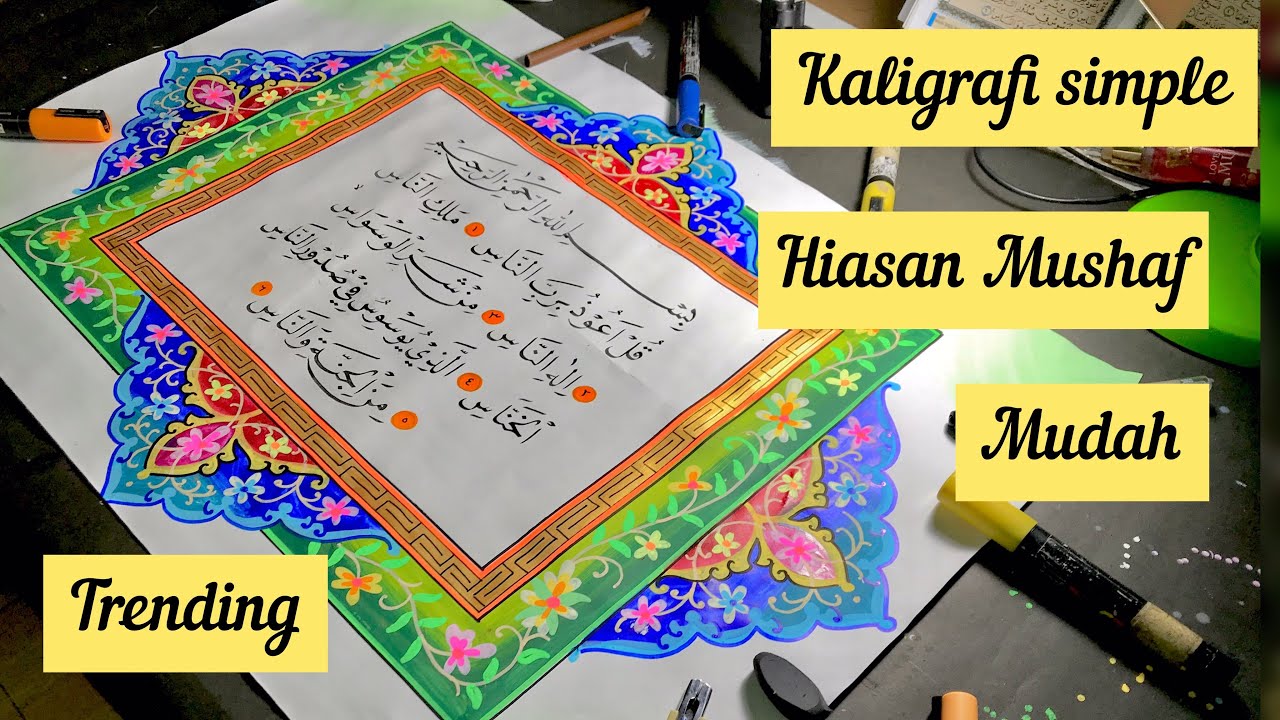 Kaligrafi simple
Hiasan Mushaf
Mudah
Trending
بِسْمِ اللهِ الرَّحْمٰنِ الرَّحِيْمِ
قُلْ اَعُوْذُ بِرَبِّ النَّاسِ ١ مَلِكِ النَّاسِ
٢ اِلٰهِ النَّاسِ ٣ مِنْ شَرِّ الْوَسْوَاسِ
الْخَنَّاسِ ٤ الَّذِيْ يُوَسْوِسُ فِيْ صُدُوْرِ النَّاسِ
٥ مِنَ الْجِنَّةِ وَالنَّاسِ ٦